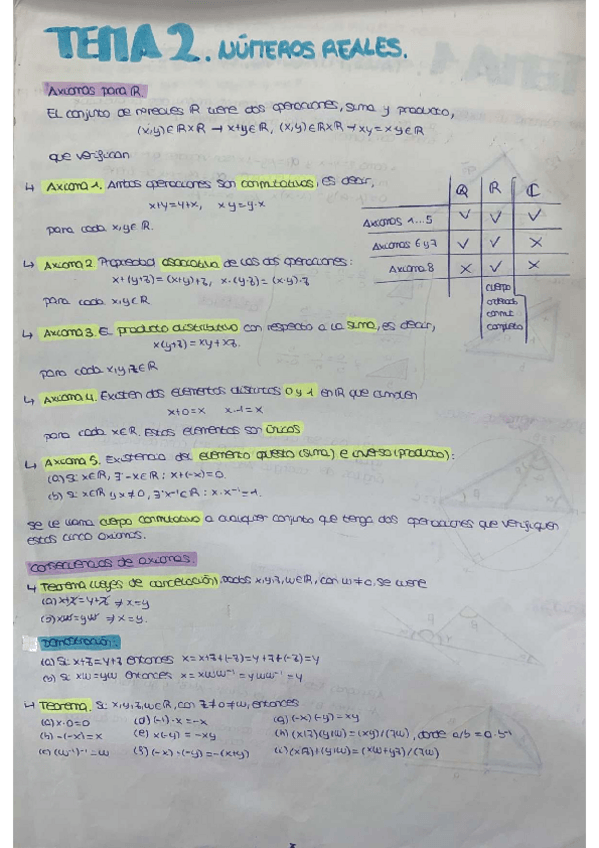 TEMA 2. NÚMEROS REALES.
Axiomas para ℝ
El conjunto de nºreales ℝ tiene dos operaciones, suma y producto,
(x,y)∈ℝxℝ → x+y∈ℝ, (x,y)∈ℝxℝ → xy = x·y∈ℝ
que verifican
↳ Axioma 1. Ambas operaciones son conmutativas, es decir,
x+y=y+x, x y=y·x
para cada x,y∈ℝ.
Q ℝ ℂ
Axiomas 1...5 ✓ ✓ ✓
Axiomas 6 y 7 ✓ ✓ ✗
Axioma 8 ✗ ✓ ✗
cuerpo
ordenado
conmut
completo
↳ Axioma 2 Propiedad asociativa de las dos operaciones:
x+(y+z)=(x+y)+z, x·(y·z)=(x·y)·z
para cada x,y∈ℝ
↳ Axioma 3. El producto distributivo con respecto a la suma, es decir,
x(y+z)=xy+xz.
para cada x,y,z∈ℝ
↳ Axioma 4. Existen dos elementos distintos 0 y 1 en ℝ que cumplen
x+0=x x·1=x
para cada x∈ℝ. Estos elementos son únicos
↳ Axioma 5. Existencia del elemento opuesto (suma) e inverso (producto):
(a) Si x∈ℝ, ∃-x∈ℝ : x+(-x)=0.
(b) Si x∈ℝ y x≠0, ∃x⁻¹∈ℝ : x·x⁻¹=1.
Se le llama cuerpo conmutativo a cualquier conjunto que tenga dos operaciones que verifiquen
estos cinco axiomas.
Consecuencias de axiomas.
↳ Teorema (leyes de cancelación). Dados x,y,z,w∈ℝ, con w≠0, se tiene
(a) x+z=y+z ⇒ x=y
(b) xw=yw ⇒ x=y.
Demostración:
(a) Si x+z=y+z entonces x=x+z+(-z)=y+z+(-z)=y
(b) Si xw=yw entonces x=xww⁻¹=yww⁻¹=y
↳ Teorema. Si x,y,z,w∈ℝ, con z≠0≠w, entonces
(a) x·0=0 (d) (-1)·x=-x (g) (-x)(-y)=xy
(b) -(-x)=x (e) x(-y)=-xy (h) (x/z)(y/w)=(xy)/(zw), donde a/b=a·b⁻¹
(c) (w⁻¹)⁻¹=w (f) (-x)+(-y)=-(x+y) (i) (x/z)+(y/w)=(xw+yz)/(zw)